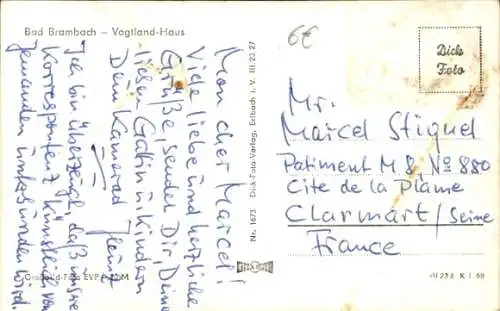 Bad Brambach – Vogtland-Haus
6€
Dick
Foto
Mon cher Marcel!
Viele liebe und herzliche
Grüße, sendet Dir, Deiner
lieben Gatin u. Kindern
Dein Kamerad
Ich bin überzeugt, daß unsere
Korrespondenz künftig von
jemanden
wird.
Nr. 1673 Dick-Foto-Verlag, Erlbach i. V. III/23/27
Mr.
Marcel Stiquel
Patiment M 8, No 880
Cite de la Plaine
Clarmart/Seine
France
EVP